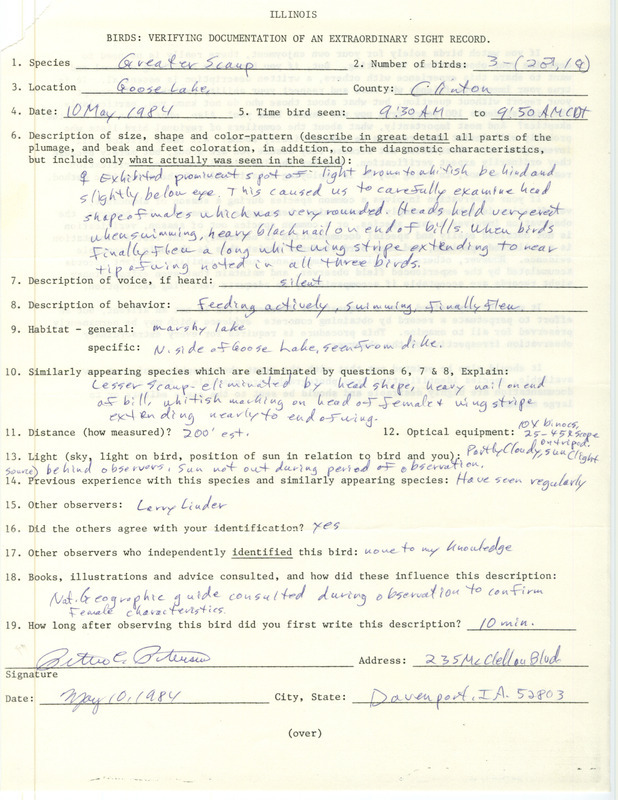 ILLINOIS
BIRDS: VERIFYING DOCUMENTATION OF AN EXTRAORDINARY SIGHT RECORD.
1. Species Greater Scaup 2. Number of birds: 3-(2♂,1♀)
3. Location Goose Lake, County: Clinton
4. Date: 10 May, 1984 5. Time bird seen: 9:30 AM to 9:50 AM CDT
6. Description of size, shape and color-pattern (describe in great detail all parts of the
plumage, and beak and feet coloration, in addition, to the diagnostic characteristics,
but include only what actually was seen in the field):
♀ Exhibited prominent spot of light brown to whitish behind and
slightly below eye. This caused us to carefully examine head
shape of males which was very rounded. Heads held very erect
when swimming, heavy black nail on end of bills. When birds
finally flew a long white wing stripe extending to near
tip of wing noted in all three birds.
7. Description of voice, if heard: silent
8. Description of behavior: Feeding actively, swimming, finally flew
9. Habitat - general: marshy lake
specific: N. side of Goose Lake, seen from dike.
10. Similarly appearing species which are eliminated by questions 6, 7 & 8, Explain:
Lesser Scaup - eliminated by head shape, heavy nail on end
of bill, whitish marking on head of female & wing stripe
extending nearly to end of wing.
11. Distance (how measured)? 200' est. 12. Optical equipment: 10X binocs,
25-45X scope
on tripod.
13. Light (sky, light on bird, position of sun in relation to bird and you): Partly Cloudy, sun (light
source) behind observers, sun not out during period of observation.
14. Previous experience with this species and similarly appearing species: Have seen regularly
15. Other observers: Larry Linder
16. Did the others agree with your identification? yes
17. Other observers who independently identified this bird: none to my knowledge
18. Books, illustrations and advice consulted, and how did these influence this description:
Nat. Geographic guide consulted during observation to confirm
female characteristics.
19. How long after observing this bird did you first write this description? 10 min.
Peter C. Petersen Address: 235 McClellan Blvd
Signature
Date: May 10, 1984 City, State: Davenport, IA. 52803
(over)